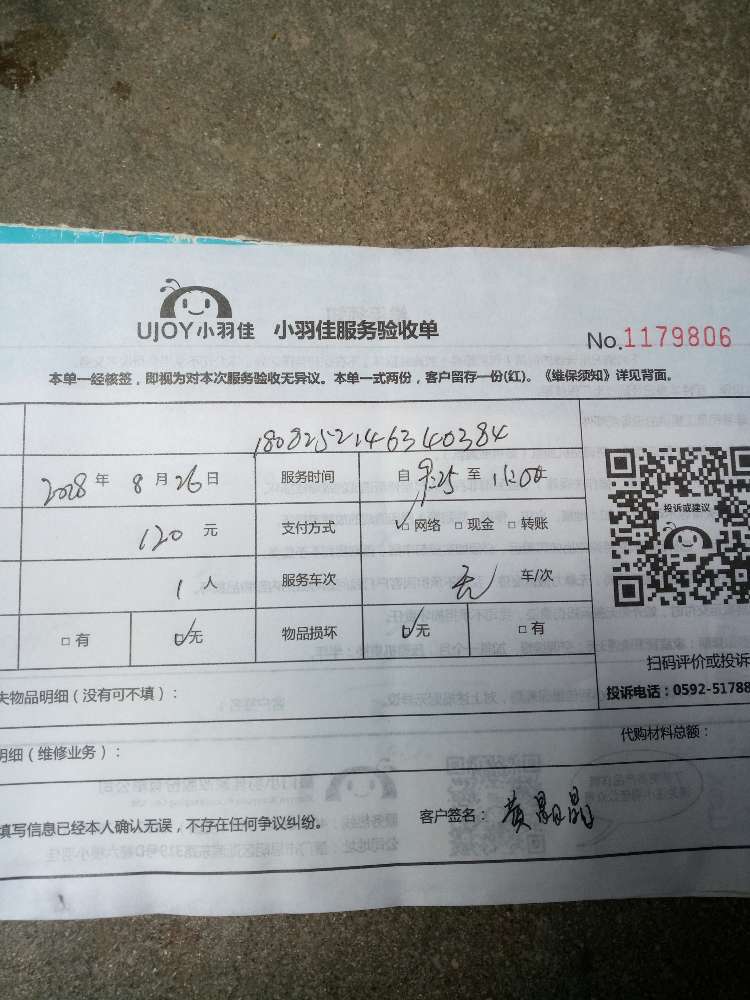 UJOY小羽佳 小羽佳服务验收单
No.1179806
本单一经核签，即视为对本次服务验收无异议。本单一式两份，客户留存一份(红)。《维保须知》详见背面。
1808252146340384
年 8 月 26 日 服务时间 自 9:25 至
120 元 支付方式 ☑网络 □现金 □转账
投诉或建议
1 人 服务车次 无 车/次
□有 ☑无 物品损坏 ☑无 □有
扫码评价或投诉
失物品明细（没有可不填）：
投诉电话：0592-51788
代购材料总额：
明细（维修业务）：
填写信息已经本人确认无误，不存在任何争议纠纷。 客户签名： 黄晶晶